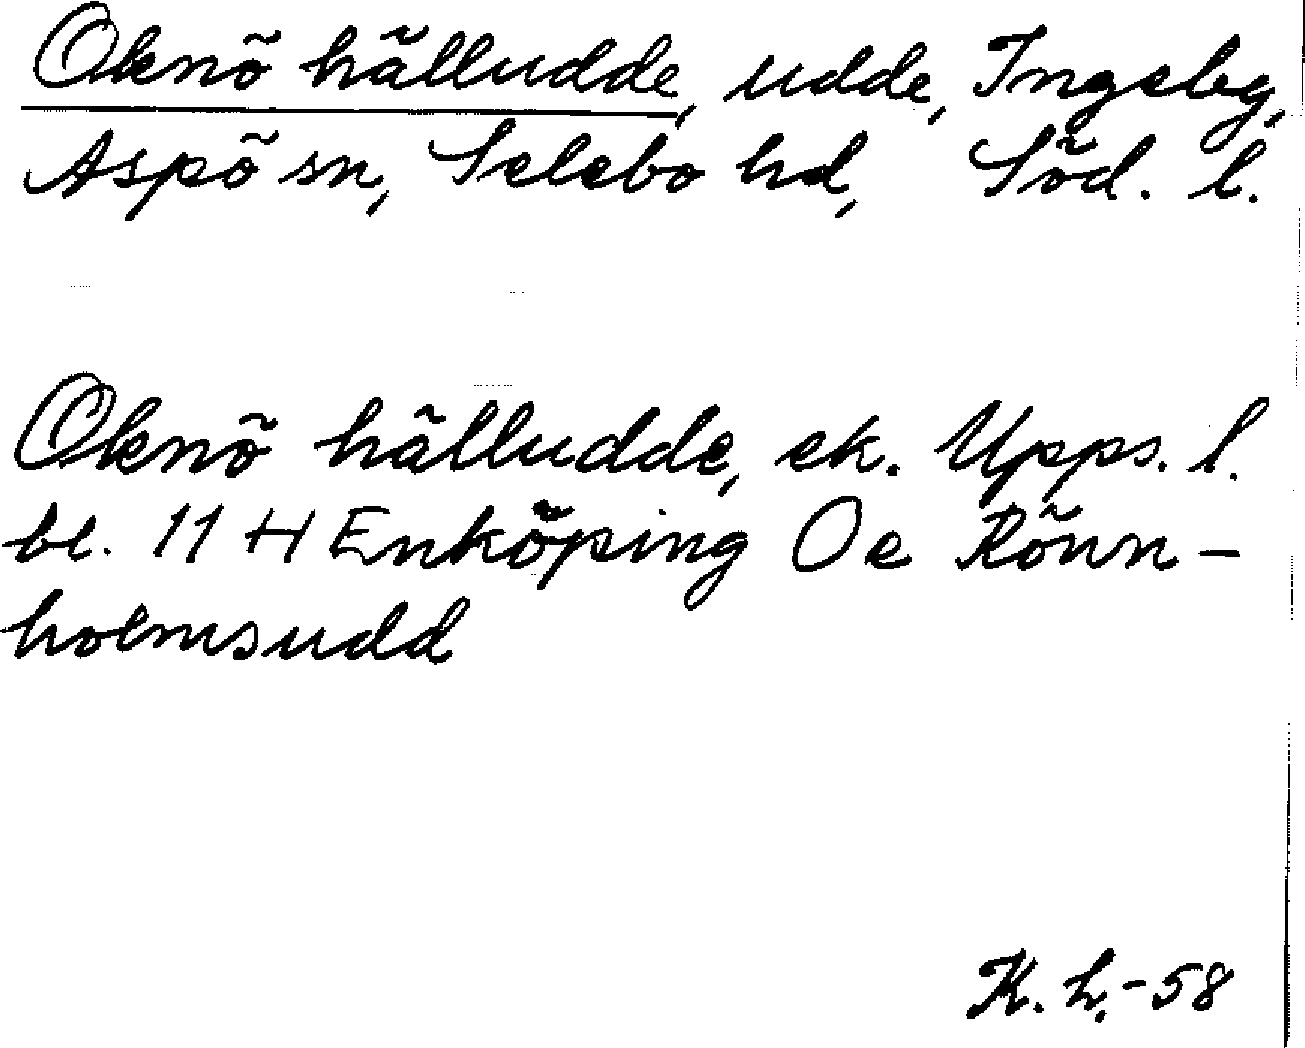 Oknö hälludde, udde, Ingeby,
Aspö sn, Selebo hd, Söd. l.
Oknö hälludde, ek. Upps. l.
bl. 11 H Enköping Oe Rönn-
holmsudd
K. h. -58